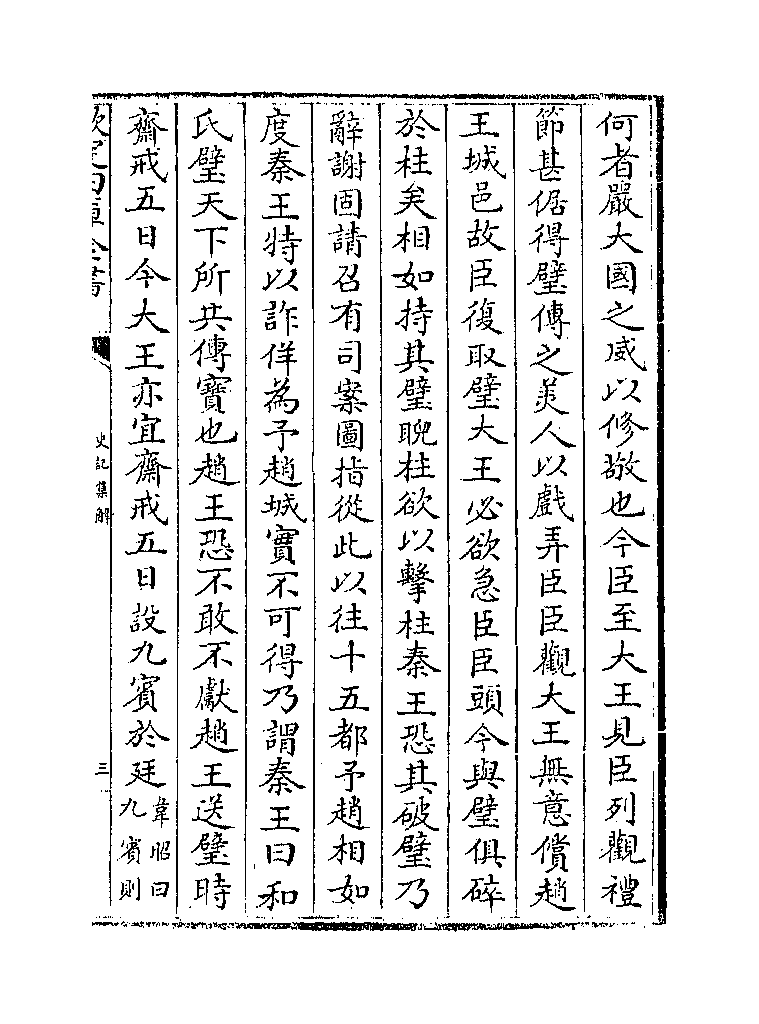 何者嚴大國之威以修敬也今臣至大王見臣列觀禮
節甚倨得璧傳之美人以戲弄臣臣觀大王無意償趙
王城邑故臣復取璧大王必欲急臣臣頭今與璧俱碎
於柱矣相如持其璧睨柱欲以擊柱秦王恐其破璧乃
辭謝固請召有司案圖指從此以往十五都予趙相如
度秦王特以詐佯為予趙城實不可得乃謂秦王曰和
氏璧天下所共傳寶也趙王恐不敢不獻趙王送璧時
齋戒五日今大王亦宜齋戒五日設九賓於廷韋昭曰
九賓則
欽定四庫全書
史記集解
三